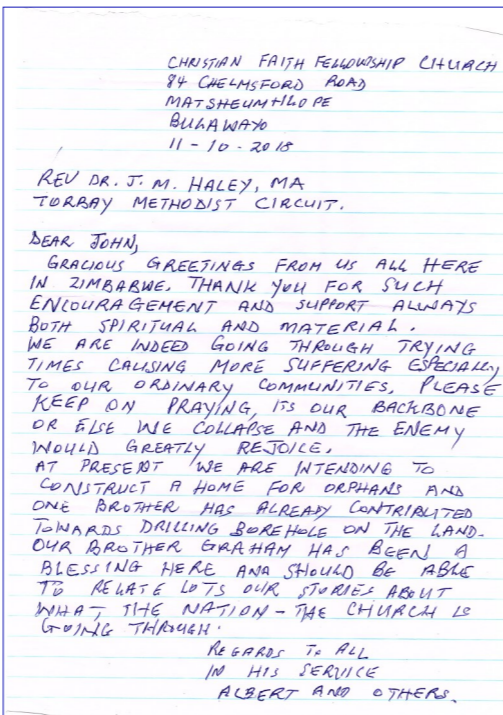 CHRISTIAN FAITH FELLOWSHIP CHURCH
84 CHELMSFORD ROAD
MATSHEUMHLOPE
BULAWAYO
11-10-2018
REV DR. J. M. HALEY, MA
TORBAY METHODIST CIRCUIT.
DEAR JOHN,
GRACIOUS GREETINGS FROM US ALL HERE
IN ZIMBABWE. THANK YOU FOR SUCH
ENCOURAGEMENT AND SUPPORT ALWAYS
BOTH SPIRITUAL AND MATERIAL.
WE ARE INDEED GOING THROUGH TRYING
TIMES CAUSING MORE SUFFERING ESPECIALLY
TO OUR ORDINARY COMMUNITIES, PLEASE
KEEP ON PRAYING, ITS OUR BACKBONE
OR ELSE WE COLLAPSE AND THE ENEMY
WOULD GREATLY REJOICE.
AT PRESENT WE ARE INTENDING TO
CONSTRUCT A HOME FOR ORPHANS AND
ONE BROTHER HAS ALREADY CONTRIBUTED
TOWARDS DRILLING BOREHOLE ON THE LAND.
OUR BROTHER GRAHAM HAS BEEN A
BLESSING HERE AND SHOULD BE ABLE
TO RELATE LOTS OUR STORIES ABOUT
WHAT THE NATION - THE CHURCH IS
GOING THROUGH.
REGARDS TO ALL
IN HIS SERVICE
ALBERT AND OTHERS.